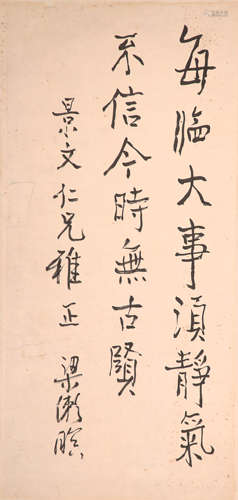 每臨大事湏靜氣
不信今時無古賢
景文仁兄雅正 梁漱暝